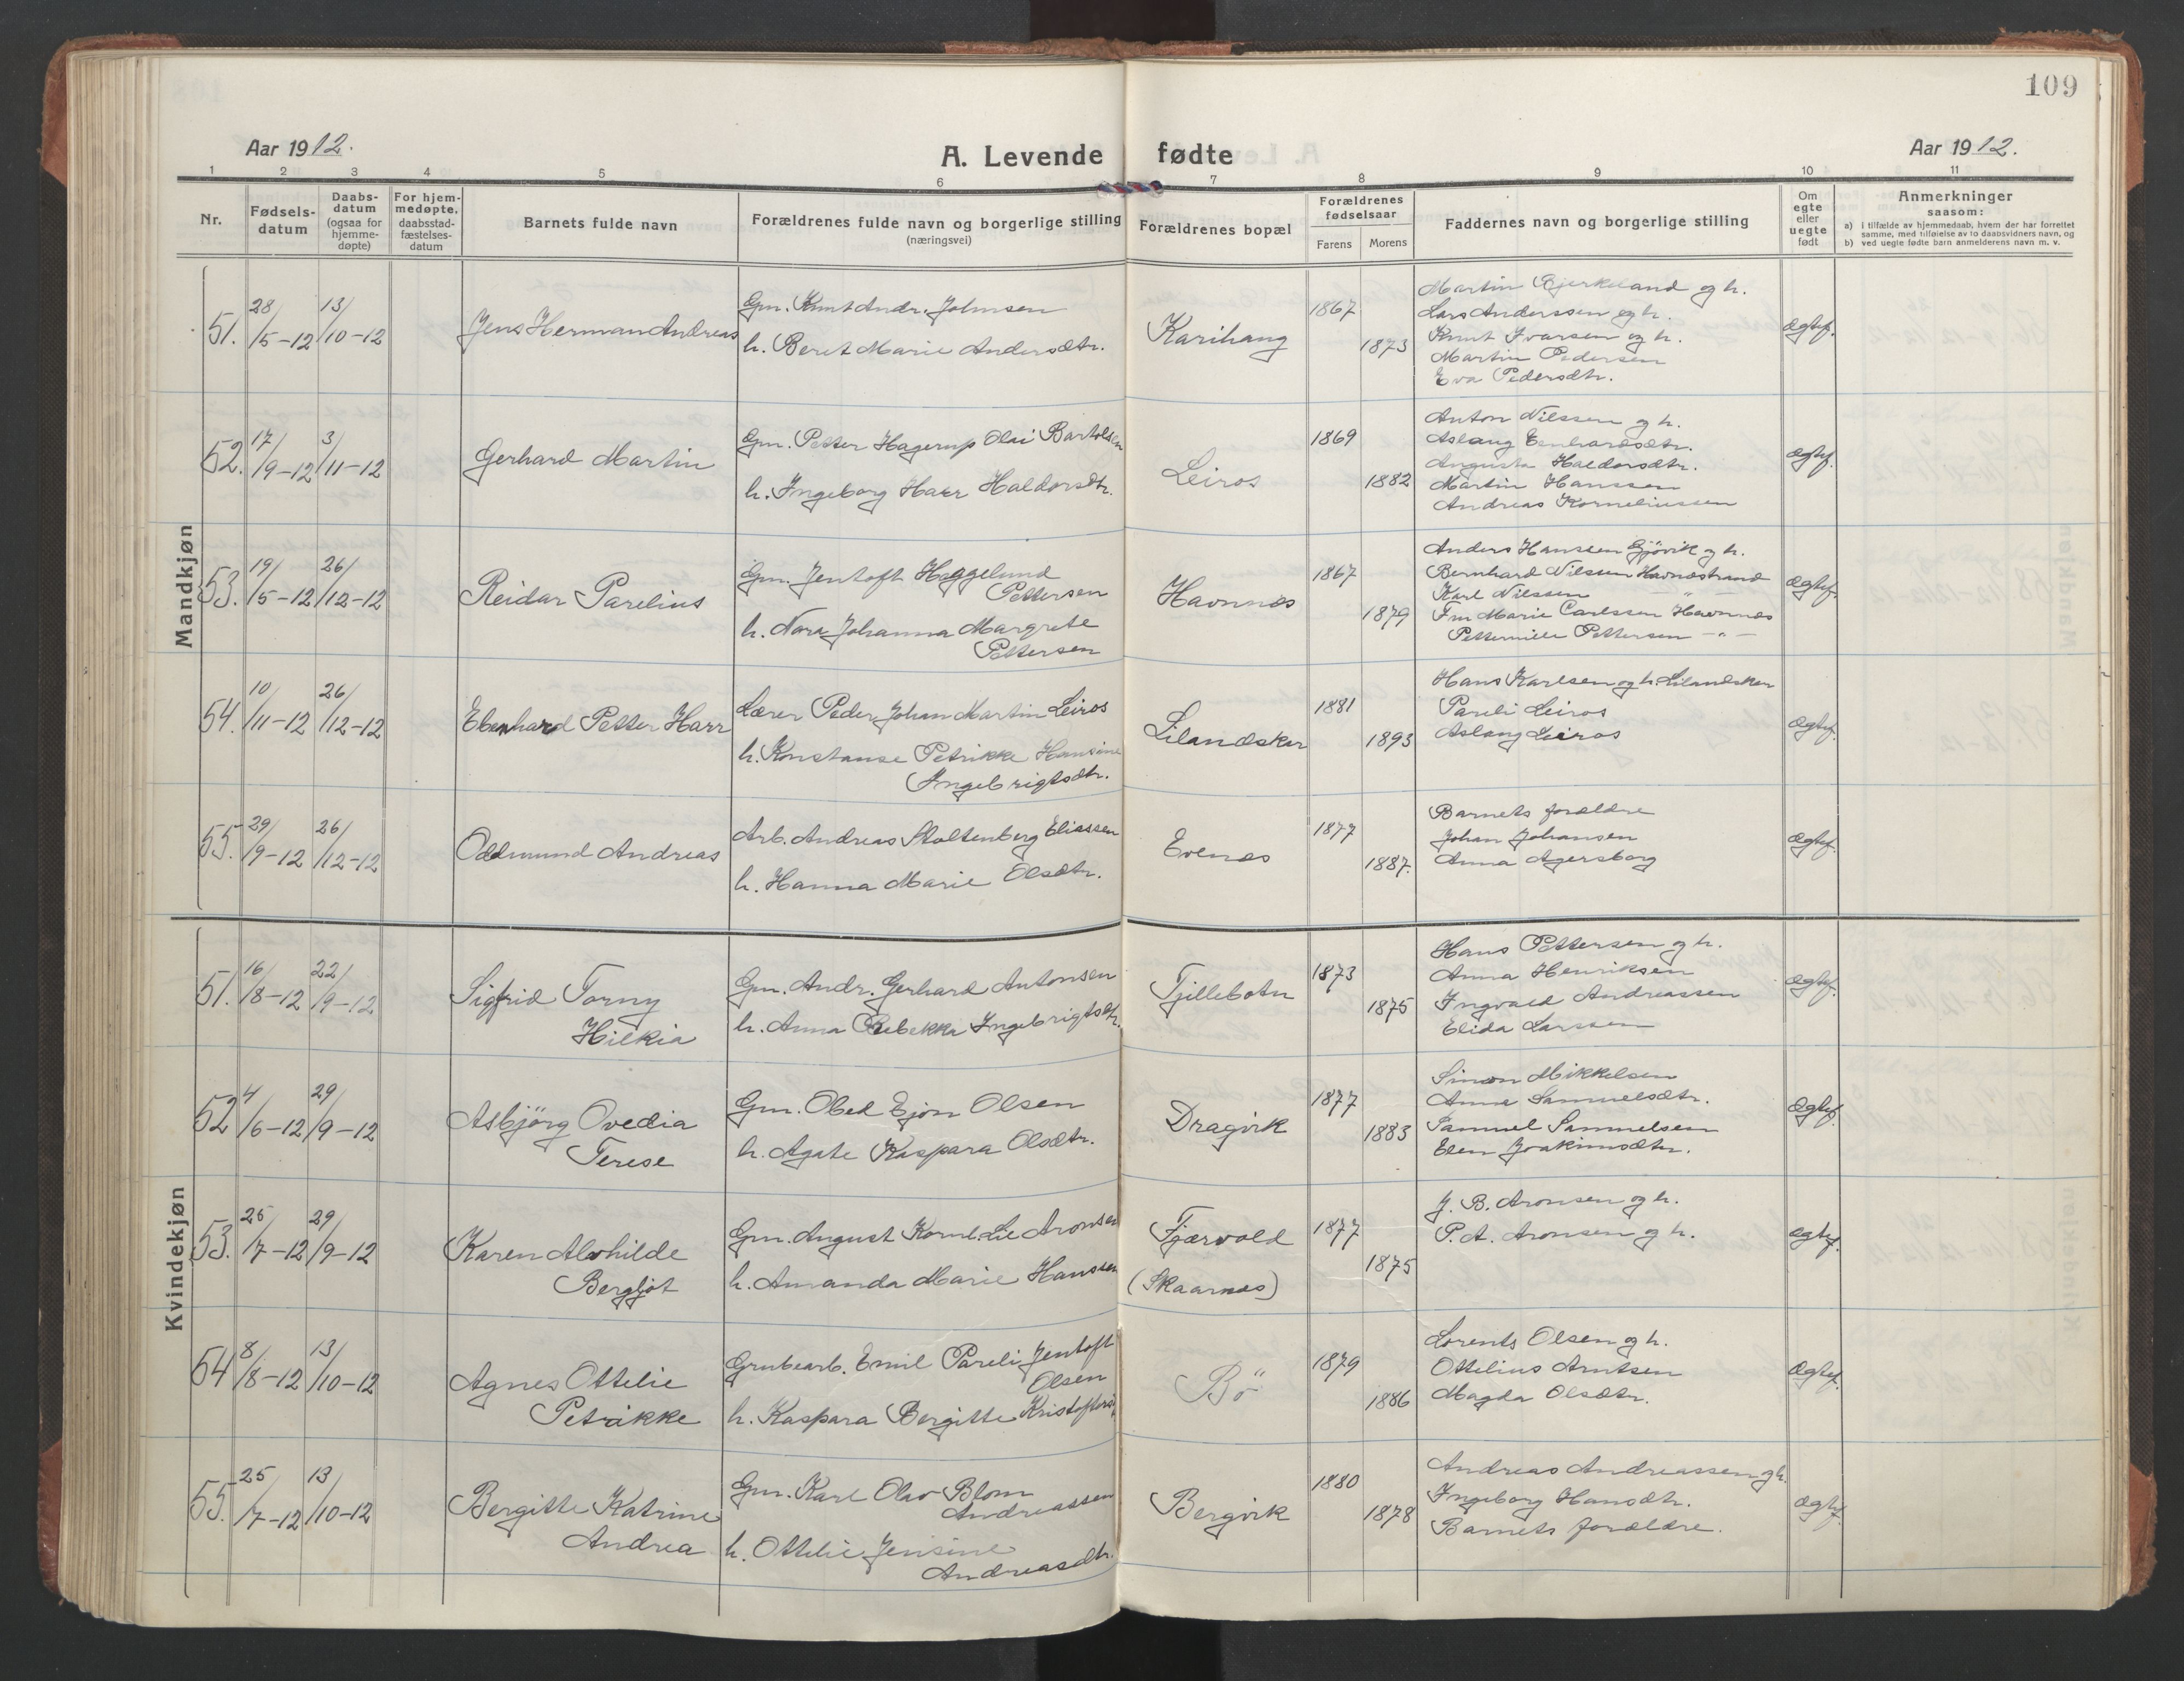 109
Aar 1912.
A. Levende fødte
Aar 1912.
1 2 3 4 5 6 7 8 9 10 11
Nr.
Fødsels-
datum
Daabs-
datum
(ogsaa for
hjemme-
døpte)
For hjem-
medøpte,
daabsstad-
fæstelses-
datum
Barnets fulde navn
Forældrenes fulde navn og borgerlige stilling
(næringsvei)
Forældrenes bopæl
Forældrenes
fødselsaar
Farens Morens
Faddernes navn og borgerlige stilling
Om
egte
eller
uegte
født
Anmerkninger
saasom:
a) i tilfælde av hjemmedaab, hvem der har forrettet
samme, med tilføielse av to daabsvidners navn, og
b) ved uegte fødte barn anmelderens navn m. v.
Mandkjøn
51. 28/5-12 13/10-12
Jens Herman Andreas
Gm. Knut Andr. Johnsen
h. Beret Marie Andersdtr.
Karihaug
1867
1873
Martin Bjerkeland og h.
Lars Anderssen og h.
Knut Ivarsen og h.
Martin Pedersen
Eva Pedersdtr.
ægtef.
52. 17/9-12 3/11-12
Gerhard Martin
Gm. Petter Hagerup Olai Bartolsen
h. Ingeborg Harr Haldorsdtr.
Leiros
1869
1882
Anton Nilssen og h.
Aslaug Eenhardsdtr.
Augusta Haldorsdtr.
Martin Hanssen
Andreas Korneliussen
ægtef.
53. 19/5-12 26/12-12
Reidar Parelius
Gm. Jentoft Heggelund
Pettersen
h. Nora Johanna Margrete
Pettersen
Havnnes
1867
1879
Anders Hanssen Gjövik og h.
Bernhard Nilssen Havnestrand
Karl Nilssen — " —
Fru Marie Carlssen Havnnes
Petternille Pettersen — " —
ægtef.
54. 10/11-12 26/12-12
Ebenhard Petter Harr
Lærer Peder Johan Martin Leiros
h. Konstanse Petrikke Hansine
Ingebrigtsdtr.
Lilandskar
1881
1893
Hans Karlsen og h. Lilandskar
Pareli Leiros
Aslaug Leiros
ægtef.
55. 29/9-12 26/12-12
Oddmund Andreas
Arb. Andreas Stoltenberg Eliassen
h. Hanna Marie Olsdtr.
Evenes
1877
1887.
Barnets forældre
Johan Johansen
Anna Agersborg
ægtef.
Kvindekjøn
51. 16/8-12 22/9-12
Sigfrid Torny
Hilkia
Gm. Andr. Gerhard Antonsen
h. Anna Rebekka Ingebrigtsdtr.
Tjillebotn
1873
1875
Hans Pettersen og h.
Anna Henriksen
Ingvald Andreassen
Elida Larssen
ægtef.
52 4/6-12 29/9-12
Asbjörg Ovedia
Terese
Gm. Obed Ejon Olsen
h. Agate Kaspara Olsdtr.
Dragvik
1877
1883
Simon Mikkelsen
Anna Samuelsdtr.
Samuel Sammelsen
Elen Joakimsdtr.
ægtef.
53. 25/7-12 29/9-12
Karen Alvhilde
Bergljot
Gm. August Kornl. Lie Aronsen
h. Amanda Marie Hanssen
Fjærvold
(Skaarnes)
1877
1875
J. B. Aronsen og h.
P. A. Aronsen og h.
ægtef.
54 8/8-12 13/10-12
Agnes Ottelie
Petrikke
Grubearb. Emil Pareli Jentoft
Olsen
h. Kaspara Bergitte
Bö
1879
1886
Lorents Olsen og h.
Ottelius Arntsen
Magda Olsdtr.
Ægtef.
55. 25/7-12 13/10-12
Bergitte Katrine
Andrea
Gm. Karl Olav Blom
Andreassen
h. Ottelie Jensine
Andreasdtr.
Bergvik
1880
1878
Andreas Andreassen og h.
Ingeborg Hansdtr.
Barnets forældre.
ægtef.